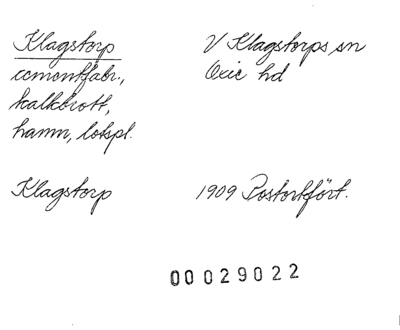 Klagstorp
V Klagstorps sn
cementfabr.,
Oxie hd
kalkbrott,
hamn, lotspl.
Klagstorp
1909 Postortfört.
00029022